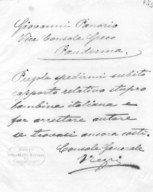 Giovanni Bonario
Vice Console
Pregola spedirmi subito
rapporto relativo stupro
bambina italiana e
far arrestare autore
se trovasi ancora costì.
Console Generale